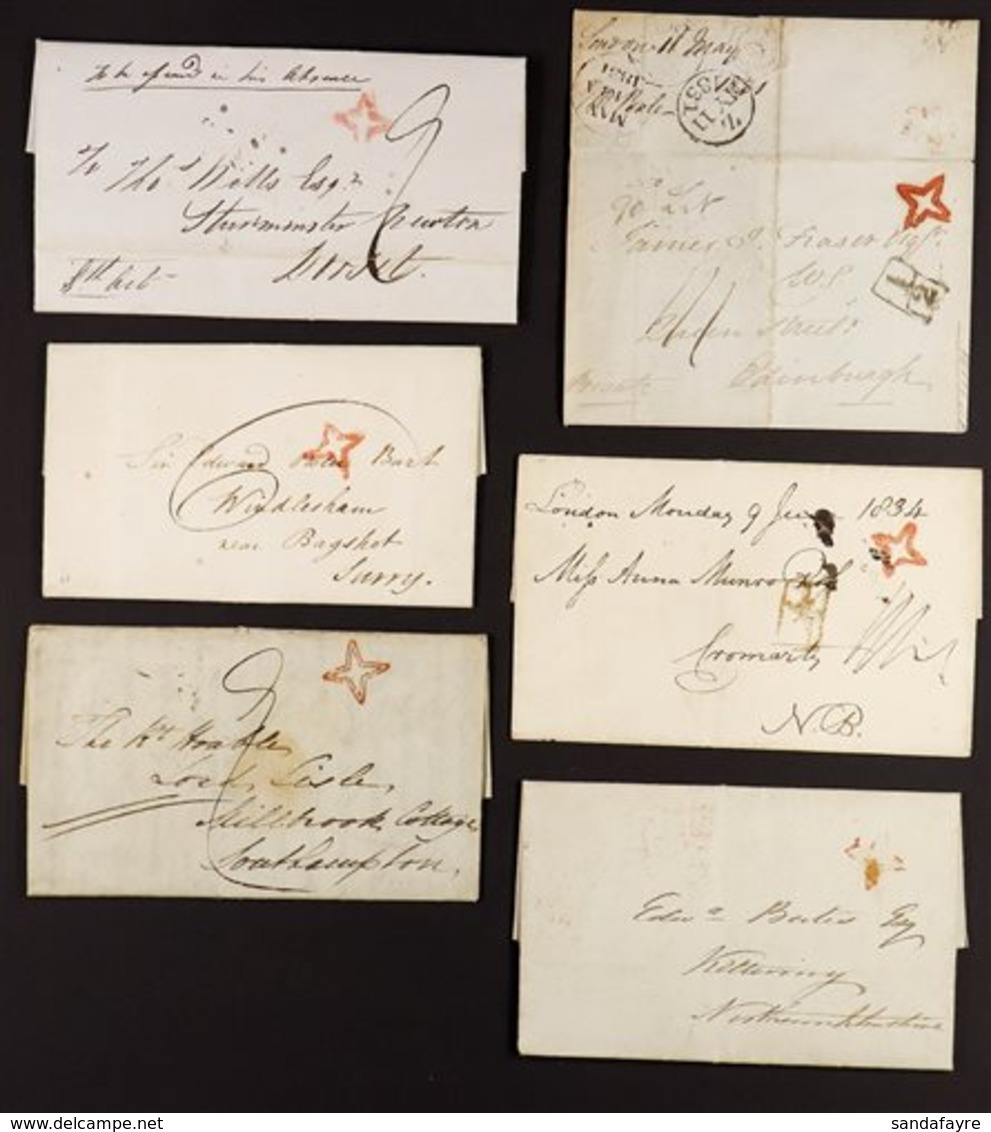 To be opened in his Absence
To Thos Wells Esqr
Sturminster Newton
Dorset.
8th Oct
London 11 May
Z
MY 11
1831
James J. Fraser Esqr
W S
Queen Street
Private Edinburgh
½
Sir Edward Bart
Windlesham
near Bagshot
Surry.
London Monday 9 June 1834
Miss Anna Munro
Cromarty
N.B.
The Rt Honble
Lord Lisle,
Millbrook Cottage
Southampton,
Edwd Esq
Kettering
Northamptonshire
sandafayre